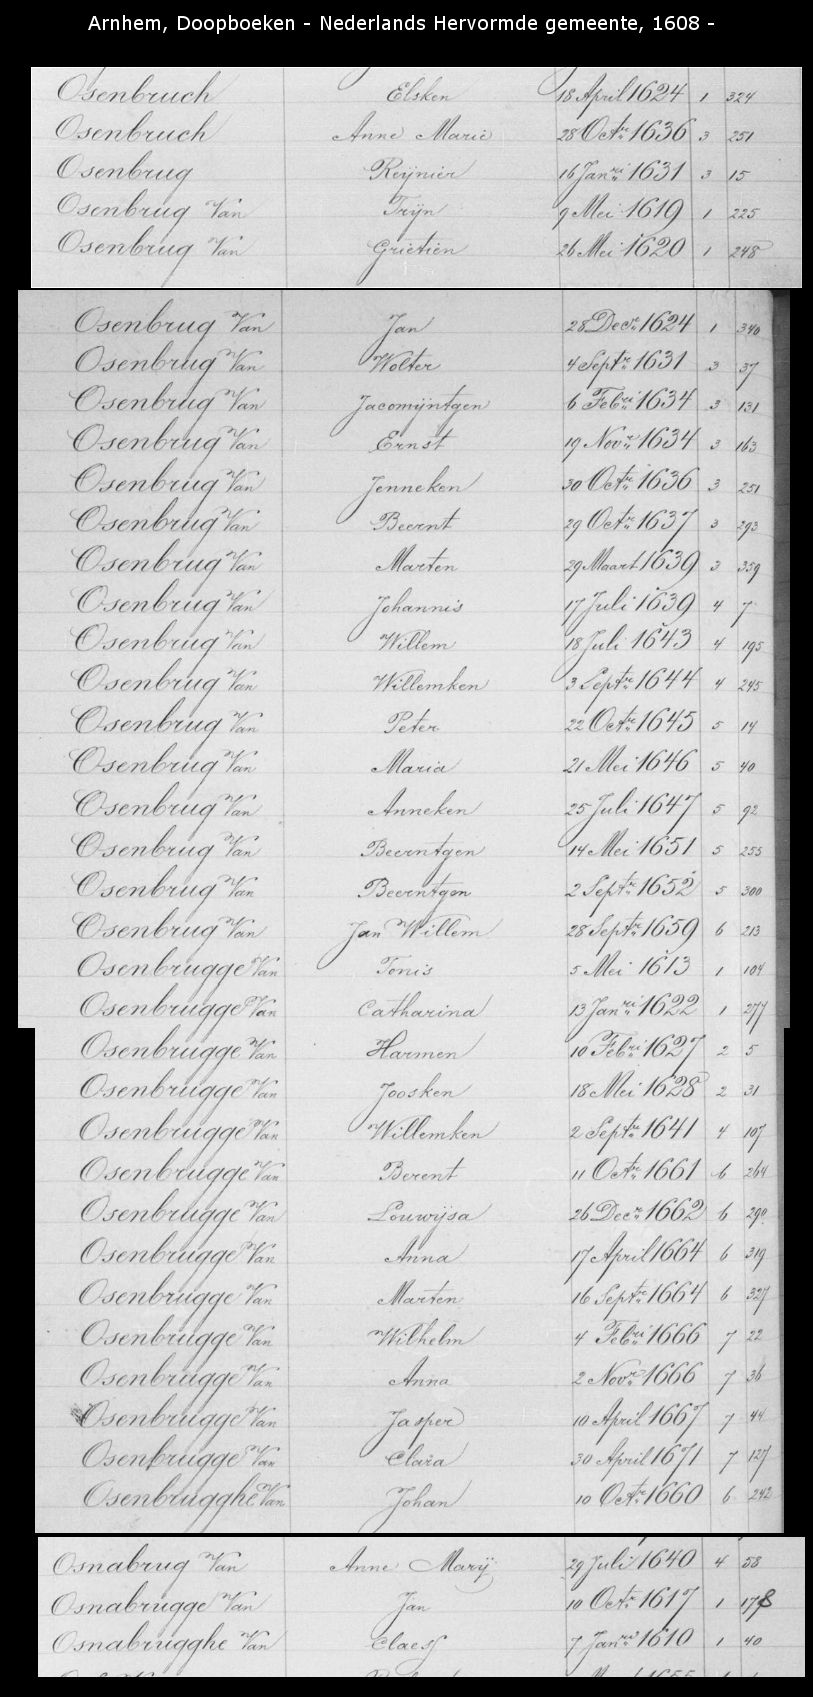 Arnhem, Doopboeken - Nederlands Hervormde gemeente, 1608 -
Osenbruch Elsken 18 April 1624 1 324
Osenbruch Anne Marie 28 Octr 1636 3 251
Osenbrug Reijnier 16 Janri 1631 3 15
Osenbrug Van Trijn 9 Mei 1619 1 225
Osenbrug Van Grietien 26 Mei 1620 1 248
Osenbrug Van Jan 28 Decr 1624 1 340
Osenbrug Van Wolter 4 Septr 1631 3 37
Osenbrug Van Jacomijntgen 6 Febri 1634 3 131
Osenbrug Van Ernst 19 Novr 1634 3 163
Osenbrug Van Jenneken 30 Octr 1636 3 251
Osenbrug Van Beernt 29 Octr 1637 3 293
Osenbrug Van Marten 29 Maart 1639 3 359
Osenbrug Van Johannis 17 Juli 1639 4 7
Osenbrug Van Willem 18 Juli 1643 4 195
Osenbrug Van Willemken 3 Septr 1644 4 245
Osenbrug Van Peter 22 Octr 1645 5 14
Osenbrug Van Maria 21 Mei 1646 5 40
Osenbrug Van Anneken 25 Juli 1647 5 92
Osenbrug Van Beerntgen 14 Mei 1651 5 255
Osenbrug Van Beerntgen 2 Septr 1652 5 300
Osenbrug Van Jan Willem 28 Septr 1659 6 213
Osenbrugge Van Tonis 5 Mei 1613 1 104
Osenbrugge Van Catharina 13 Janri 1622 1 277
Osenbrugge Van Harmen 10 Febri 1627 2 5
Osenbrugge Van Joosken 18 Mei 1628 2 31
Osenbrugge Van Willemken 2 Septr 1641 4 107
Osenbrugge Van Berent 11 Octr 1661 6 264
Osenbrugge Van Louwijsa 26 Decr 1662 6 290
Osenbrugge Van Anna 17 April 1664 6 319
Osenbrugge Van Marten 16 Septr 1664 6 327
Osenbrugge Van Wilhelm 4 Febri 1666 7 22
Osenbrugge Van Anna 2 Novr 1666 7 36
Osenbrugge Van Jasper 10 April 1667 7 44
Osenbrugge Van Clara 30 April 1671 7 127
Osenbrugghe Van Johan 10 Octr 1660 6 242
Osnabrug Van Anne Marij 29 Juli 1640 4 58
Osnabrugge Van Jan 10 Octr 1617 1 178
Osnabrugghe Van Claess 7 Janri 1610 1 40